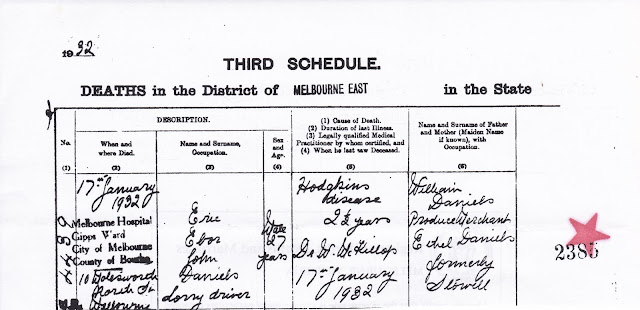 1932
THIRD SCHEDULE.
DEATHS in the District of MELBOURNE EAST in the State
DESCRIPTION.
No.
(1)
When and
where Died.
(2)
Name and Surname,
Occupation.
(3)
Sex
and
Age.
(4)
(1) Cause of Death.
(2) Duration of last Illness.
(3) Legally qualified Medical
Practitioner by whom certified, and
(4) When he last saw Deceased.
(5)
Name and Surname of Father
and Mother (Maiden Name
if known), with
Occupation.
(6)
17th January
1932
Melbourne Hospital
Gipps Ward
City of Melbourne
County of Bourke
10
North
Melbourne
Eric
John
Daniels
Lorry driver
Male
27
years
Hodgkins
disease
2½ years
Dr W. McKillop
17th January
1932
William
Daniels
Produce Merchant
Ethel Daniels
formerly
Stowell
2385